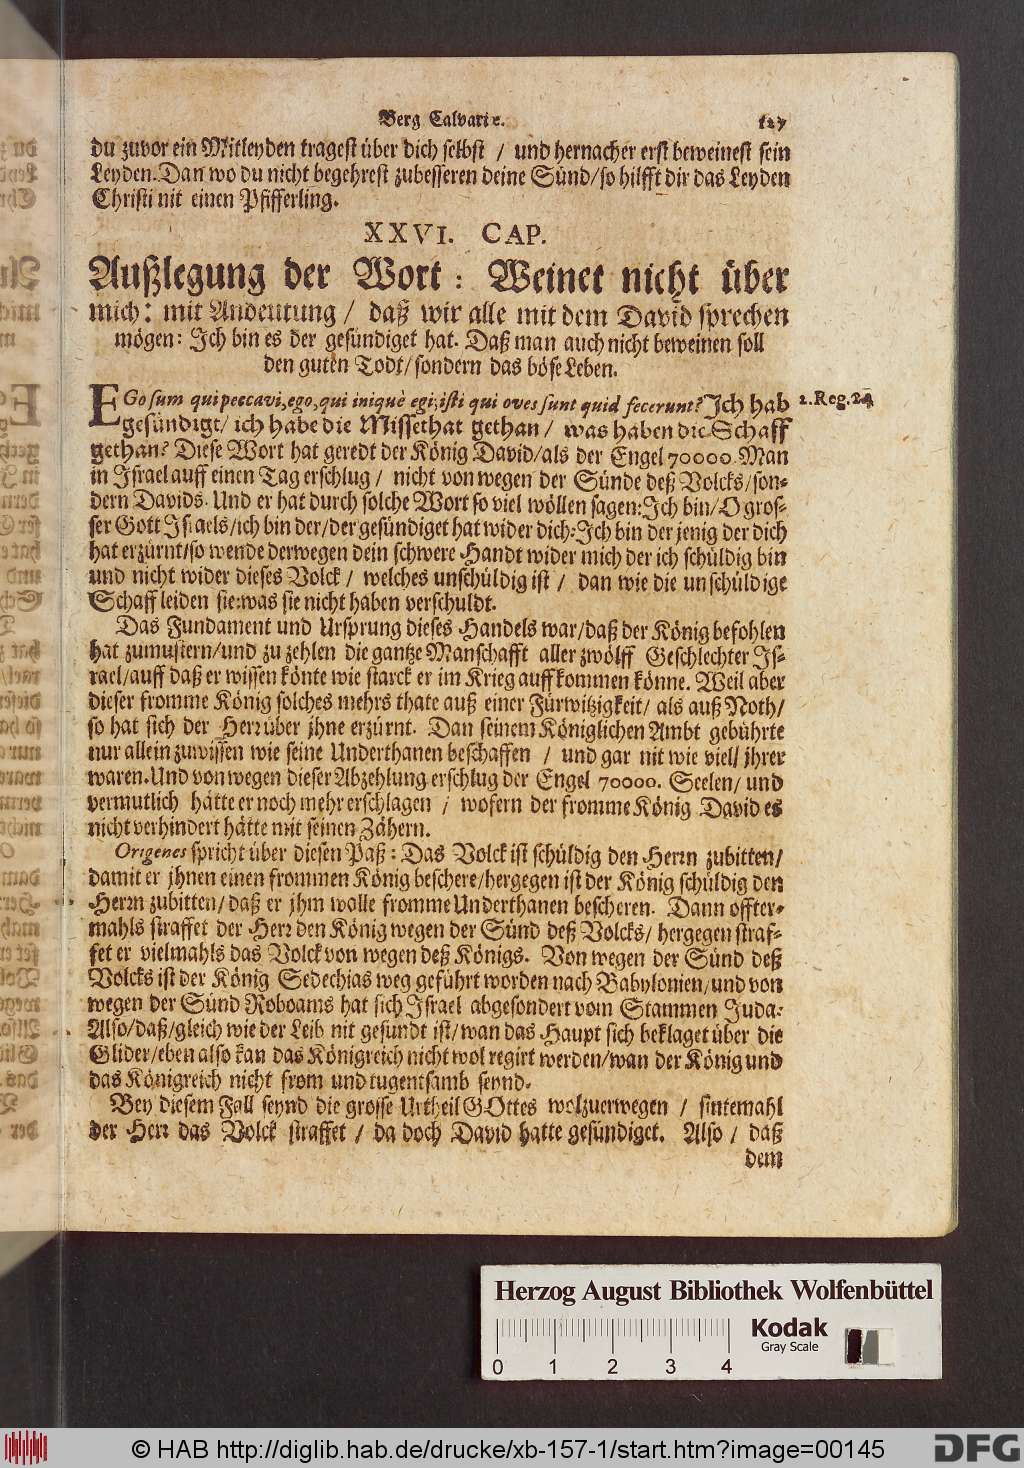 Berg Calvariæ. 127
du zuvor ein Mitleyden tragest über dich selbst / und hernacher erst beweinest sein
Leyden. Dan wo du nicht begehrest zubesseren deine Sünd/so hilfft dir das Leyden
Christi nit einen Pfifferling.
XXVI. CAP.
Außlegung der Wort: Weinet nicht über
mich: mit Andeutung / daß wir alle mit dem David sprechen
mögen: Ich bin es der gesündiget hat. Daß man auch nicht beweinen soll
den guten Todt/sondern das böse Leben.
EGo sum qui peccavi, ego, qui iniquè egi; isti qui oves sunt quid fecerunt? Ich hab
2. Reg. 24
gesündigt/ ich habe die Missethat gethan / was haben die Schaff
gethan? Diese Wort hat geredt der König David/als der Engel 70000. Man
in Israel auff einen Tag erschlug / nicht von wegen der Sünde deß Volcks/son-
dern Davids. Und er hat durch solche Wort so viel wöllen sagen: Ich bin/O gros-
ser Gott Israels/ich bin der/der gesündiget hat wider dich: Ich bin der jenig der dich
hat erzürnt/so wende derwegen dein schwere Handt wider mich der ich schüldig bin
und nicht wider dieses Volck / welches unschüldig ist / dan wie die unschüldige
Schaff leiden sie: was sie nicht haben verschuldt.
Das Fundament und Ursprung dieses Handels war/daß der König befohlen
hat zumustern/und zu zehlen die gantze Manschafft aller zwölff Geschlechter Is-
rael/auff daß er wissen könte wie starck er im Krieg auffkommen könne. Weil aber
dieser fromme König solches mehrs thate auß einer Fürwitzigkeit/ als auß Noth/
so hat sich der Herr über jhne erzürnt. Dan seinem Königlichen Ambt gebührte
nur allein zuwissen wie seine Underthanen beschaffen / und gar nit wie viel jhrer
waren. Und von wegen dieser Abzehlung erschlug der Engel 70000. Seelen/ und
vermutlich hätte er noch mehr erschlagen / wofern der fromme König David es
nicht verhindert hätte mit seinen Zähern.
Origenes spricht über diesen Paß: Das Volck ist schüldig den Herrn zubitten/
damit er jhnen einen frommen König beschere/hergegen ist der König schüldig den
Herrn zubitten/daß er jhm wolle fromme Underthanen bescheren. Dann offter-
mahls straffet der Herr den König wegen der Sünd deß Volcks/ hergegen straf-
fet er vielmahls das Volck von wegen deß Königs. Von wegen der Sünd deß
Volcks ist der König Sedechias weg geführt worden nach Babylonien/und von
wegen der Sünd Roboams hat sich Israel abgesondert vom Stammen Juda.
Also/daß/gleich wie der Leib nit gesundt ist/wan das Haupt sich beklaget über die
Glider/eben also kan das Königreich nicht wol regirt werden/wan der König und
das Königreich nicht from und tugentsamb seynd.
Bey diesem Fall seynd die grosse Urtheil GOttes wolzuerwegen / sintemahl
der Herr das Volck straffet / da doch David hatte gesündiget. Also / daß
dem
Herzog August Bibliothek Wolfenbüttel
Kodak
Gray Scale
0 1 2 3 4
© HAB http://diglib.hab.de/drucke/xb-157-1/start.htm?image=00145
DFG